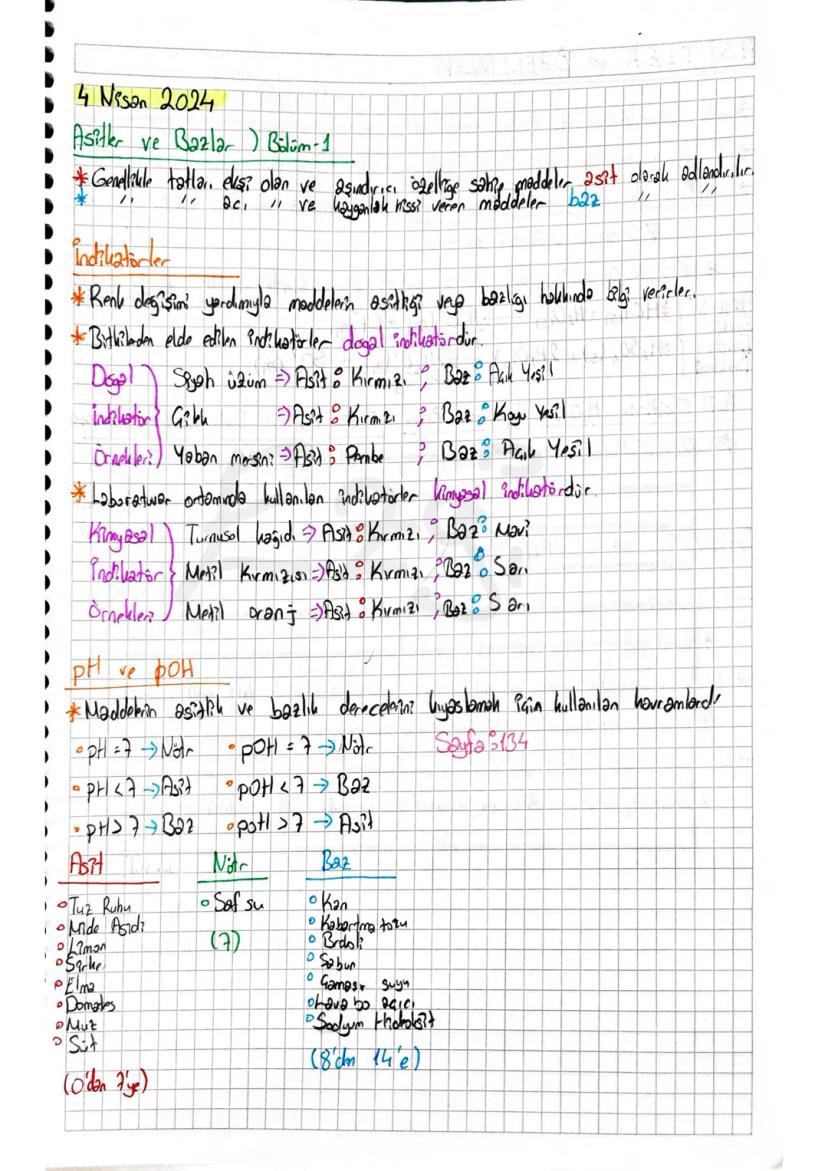 4 Nisan 2024
Asitler ve Bazlar ) Bölüm-1
* Genellikle tatları ekşi olan ve aşındırıcı özelliğe sahip maddeler asit olarak adlandırılır.
* " " acı " ve kayganlık hissi veren maddeler baz " "
İndikatörler
* Renk değişimi yardımıyla maddelerin asitliği veya bazlığı hakkında bilgi verirler.
* Bitkilerden elde edilen indikatörler doğal indikatördür.
Doğal Siyah üzüm => Asit : Kırmızı ; Baz : Açık Yeşil
İndikatör Çilek => Asit : Kırmızı ; Baz : Koyu Yeşil
Örnekleri Yaban mersini => Asit : Pembe ; Baz : Açık Yeşil
* Laboratuvar ortamında kullanılan indikatörler kimyasal indikatördür.
Kimyasal Turnusol kağıdı => Asit : Kırmızı ; Baz : Mavi
İndikatör Metil Kırmızısı => Asit : Kırmızı ; Baz : Sarı
Örnekleri Metil oranj => Asit : Kırmızı ; Baz : Sarı
pH ve pOH
* Maddelerin asitlik ve bazlık derecelerini kıyaslamak için kullanılan kavramlardı
• pH = 7 → Nötr • pOH = 7 → Nötr Sayfa : 134
• pH < 7 → Asit • pOH < 7 → Baz
• pH > 7 → Baz • poH > 7 → Asit
Asit Nötr Baz
• Tuz Ruhu • Saf su • Kan
• Mide Asidi • Kabartma tozu
• Limon (7) • Brokoli
• Sirke • Sabun
• Elma • Çamaşır suyu
• Domates • Lavabo açıcı
• Muz • Sodyum Hidroksit
• Süt
(0'dan 7'ye) (8'den 14'e)